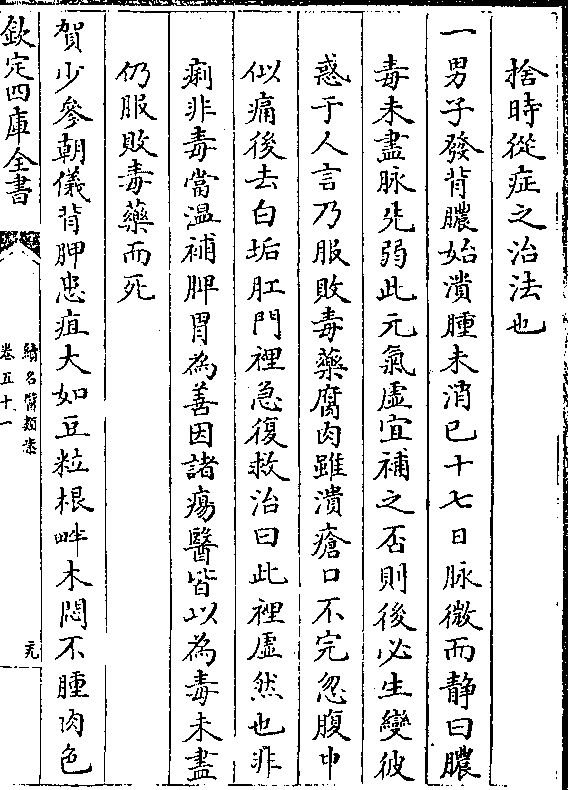 捨時從症之治法也
一男子發背膿始潰腫未消已十七日脉微而静曰膿
毒未盡脉先弱此元氣虛宜補之否則後必生變彼
惑于人言乃服敗毒藥腐肉雖潰瘡口不完忽腹中
似痛後去白垢肛門裡急復救治曰此裡虛然也非
痢非毒當温補脾胃為善因諸瘍醫皆以為毒未盡
仍服敗毒藥而死
賀少參朝儀背胛患疽大如豆粒根畔木悶不腫肉色
欽定四庫全書
續名醫類案
卷五十一